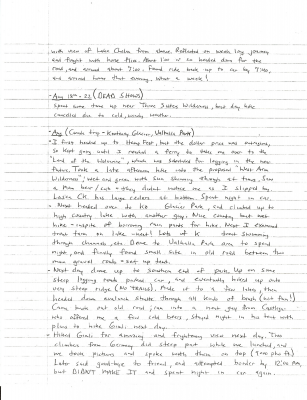 with view of Lake Chelan from above. Reflected on weeks long journey
and fight with horse flies. About 1:00 or so headed down for the
road, and arrived about 7:00. Found ride back up to car by 9:00,
and arrived home that evening. What a week!
- Aug 18th - 23 (DEAD SHOWS)
Spent some time up near Three Sisters Wilderness, but day hike
cancelled due to cold, windy weather.
- Aug (Canada trip - Kootenay Glacier, Valhalla Park)
I first headed up to Hemp Fest, but the dollar price was
So kept going until I needed a ferry, to take me over to the
"Land of the Unknown", which was scheduled for logging in the near
future. Took a late afternoon hike into the proposed West Arm
Wilderness, wet and pristine with sun shining through at times, saw
a Mom bear / cub + they didn't notice me as I slipped by.
Lasca Ck has large cedars at bottom. Spent night in car.
- Next headed over to Kt Glacier Park, and climbed up to
high country lake with another guy. Nice country but wet
hike - inspite of borrowing rain pants for hike. Most I examined
through channels, etc. Drove to Valhalla Park area to spend
night, and finally found small site in old road between two
- set up tent.
- Next day drove up to southern end of park. Up on some
steep logging roads parked car, and eventually hiked up onto
very steep ridge (NO TRAIL). Made it to a few lakes, then
headed down avalanche shute through all kinds of brush (not fun!)
Came back out old road, ran into a neat guy from Castlegar
who offered me a few cold beers, stayed night in his tent with
plans to hike Gimli next day.
- Hiked Gimli for amazing and frightening view next day. Two
climbers from Germany did steep part while we watched, and
we took pictures and spoke with them on top
Later said goodbye to friend, and attempted border by 12:00 AM,
but DIDN'T MAKE IT and spent night in car again.